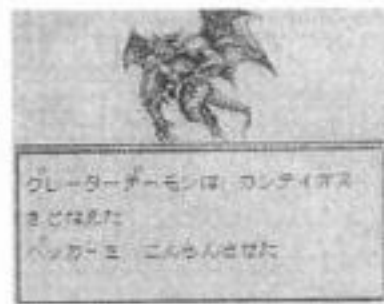 グレーターデーモンは カンティオス
をとなえた
ベッカーを こんらんさせた